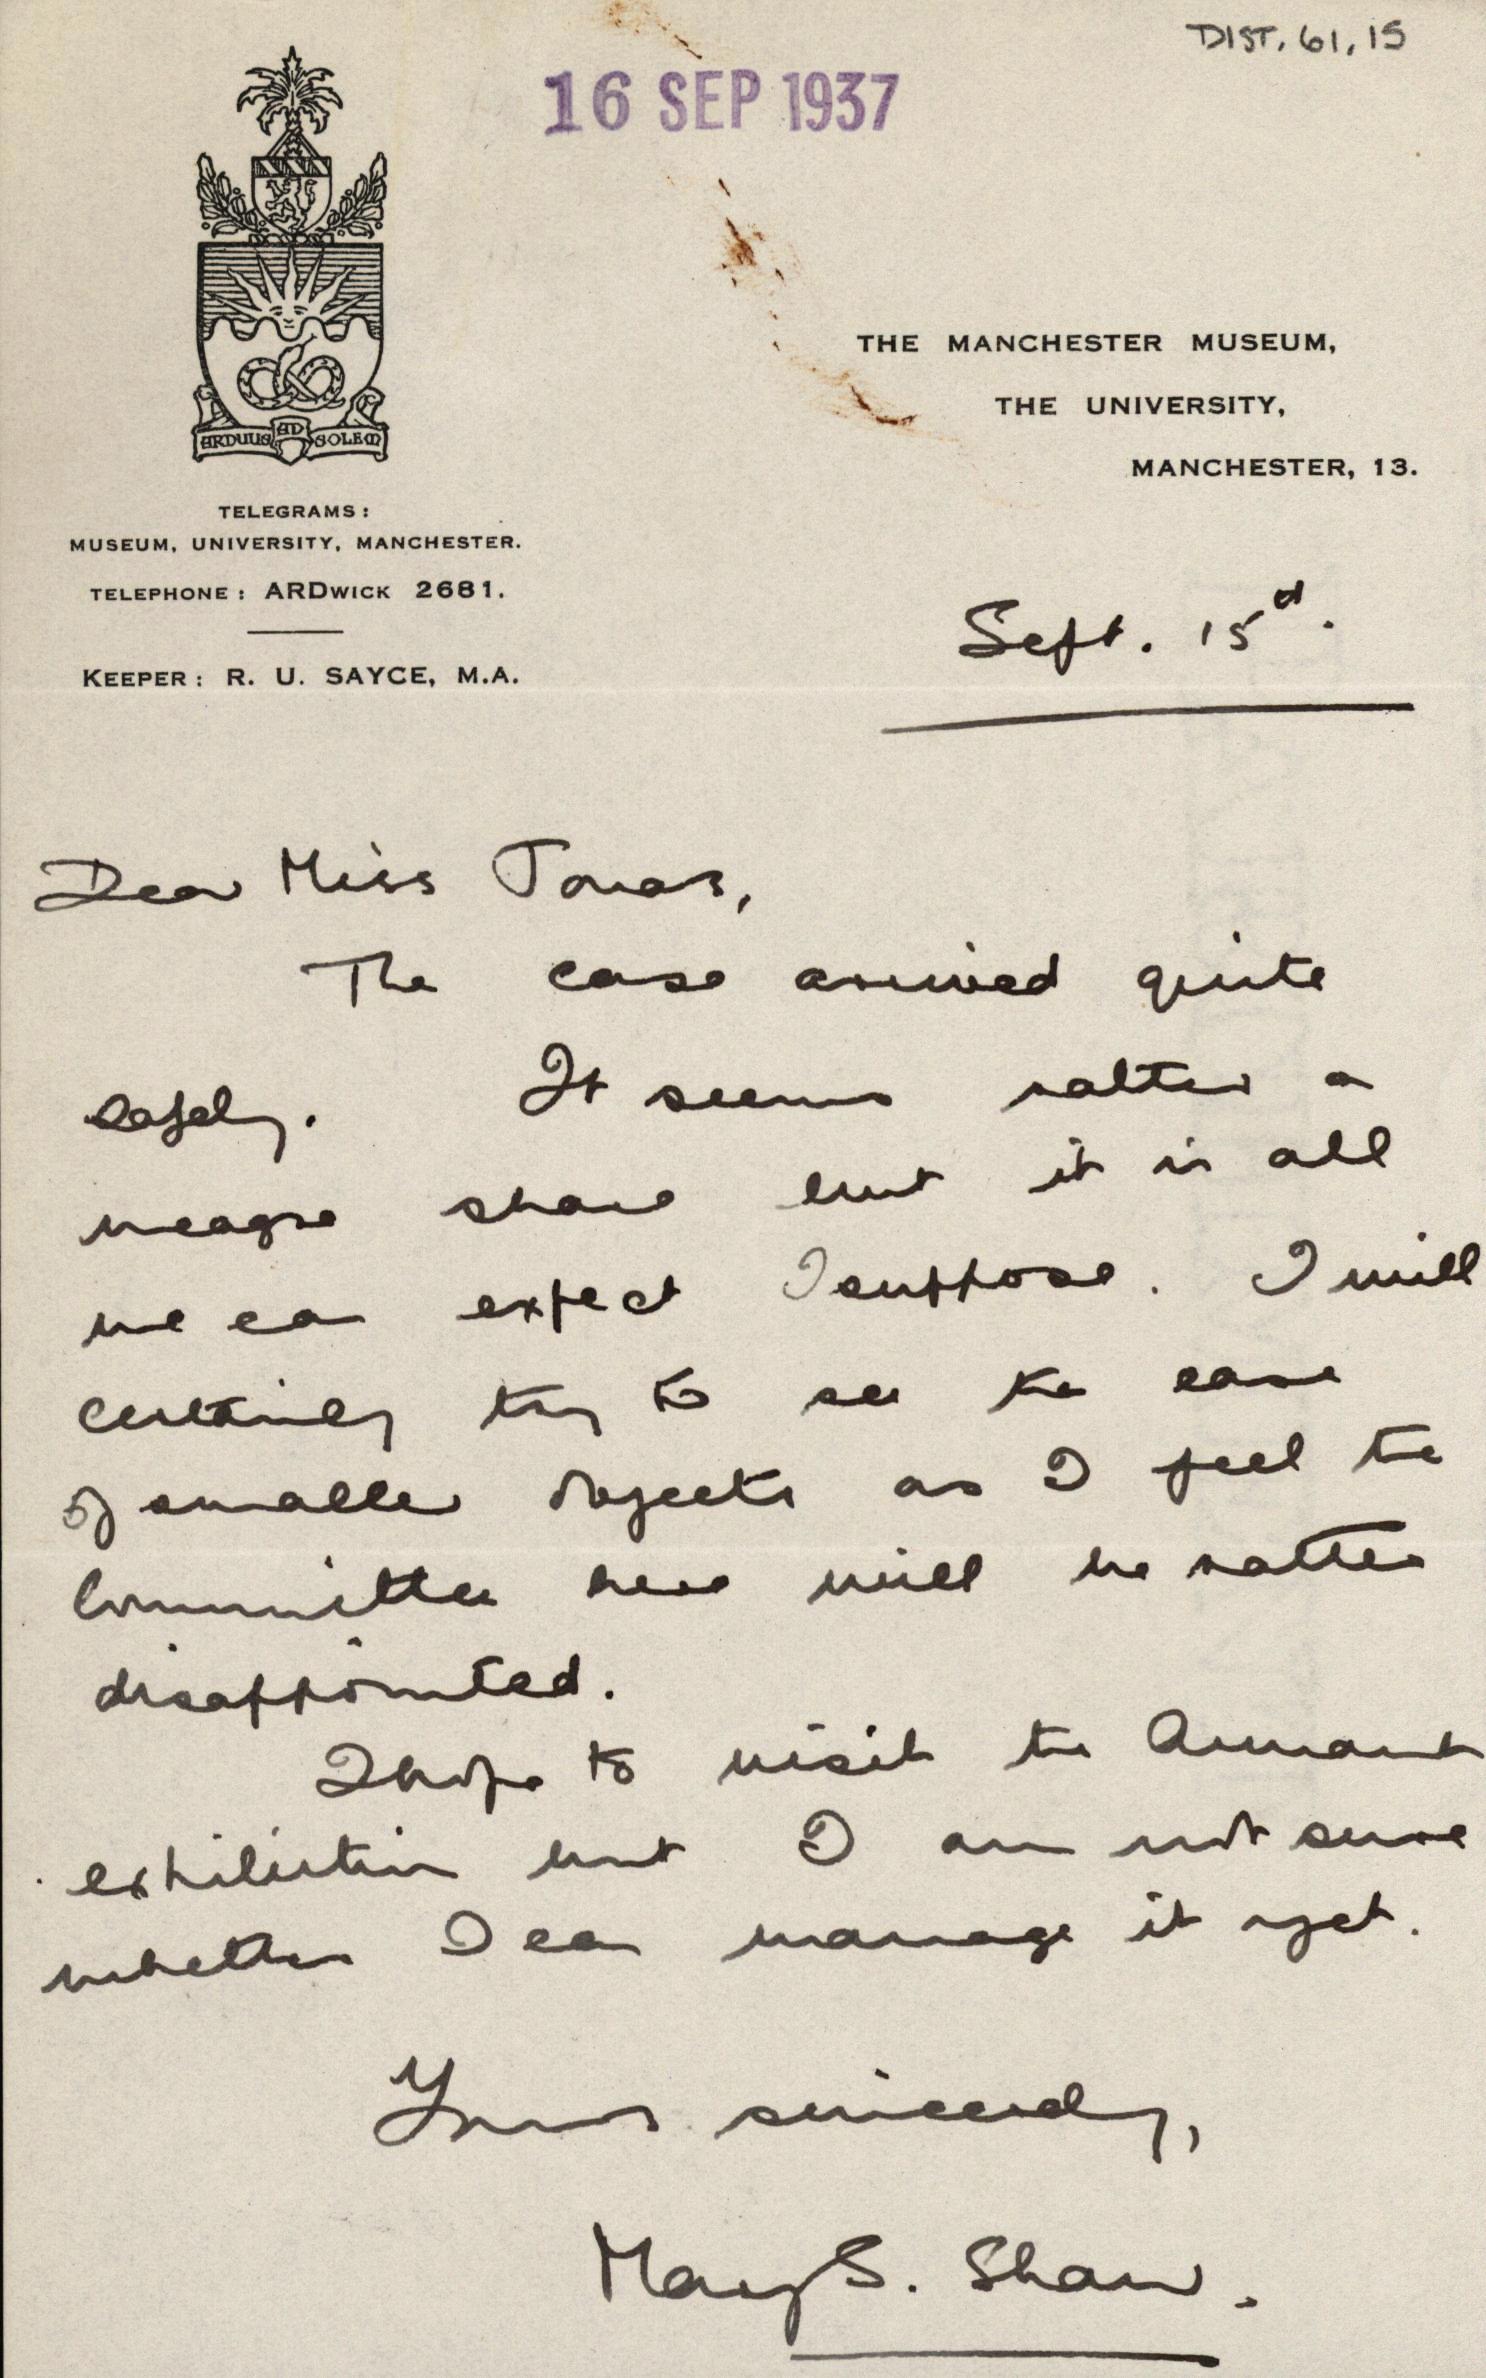 DIST. 61, 15
16 SEP 1937
ARDUUS AD SOLEM
THE MANCHESTER MUSEUM,
THE UNIVERSITY,
MANCHESTER, 13.
TELEGRAMS:
MUSEUM, UNIVERSITY, MANCHESTER.
TELEPHONE: ARDWICK 2681.
KEEPER: R. U. SAYCE, M.A.
Sept. 15th.
Dear Miss Jonas,
The case arrived quite
safely. It seems rather a
meagre share but it is all
we can expect I suppose. I will
certainly try to see the case
of smaller objects as I feel the
Committee here will be rather
disappointed.
I hope to visit the Armant
exhibition but I am not sure
whether I can manage it yet.
Yours sincerely,
Mary S. Shaw.